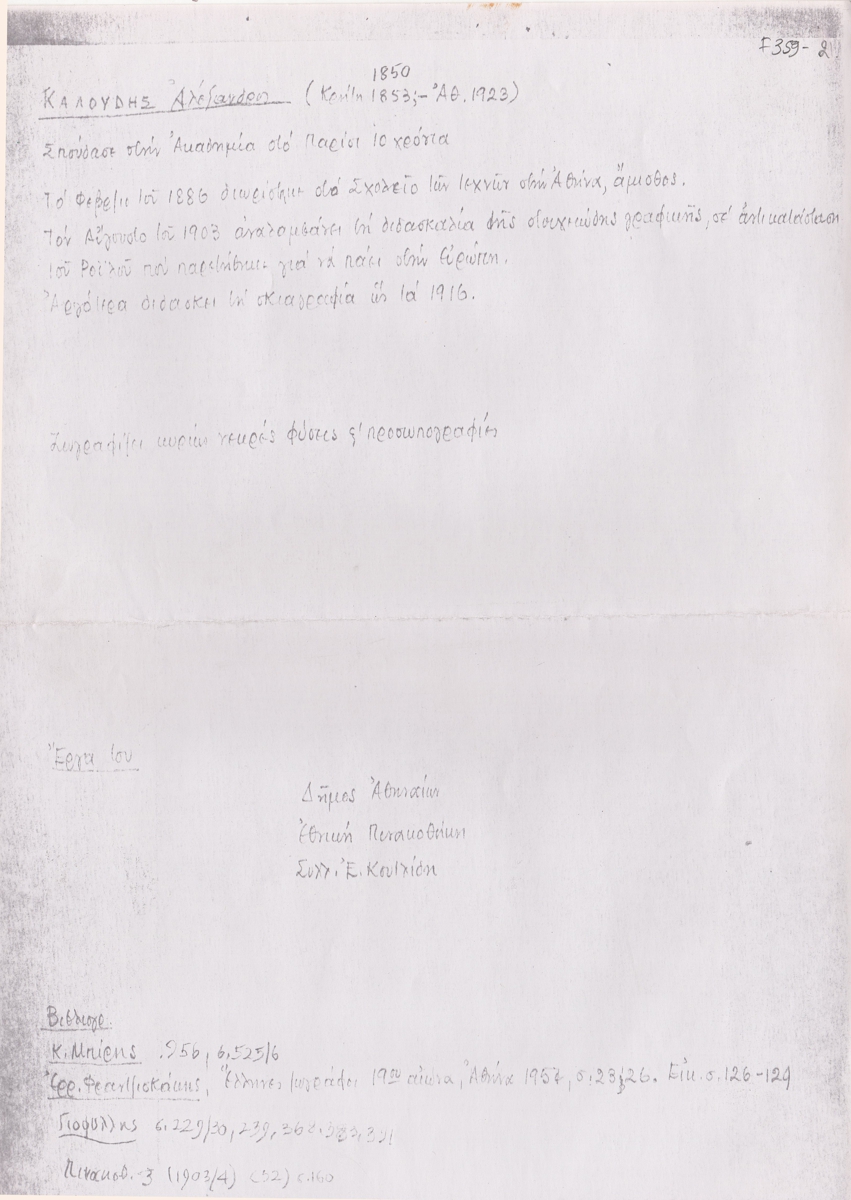 F 359-2
1850
ΚΑΛΟΥΔΗΣ Ἀλέξανδρος (Κρήτη 1853; - Ἀθ. 1923)
Σπούδασε στήν Ἀκαδημία στό Παρίσι 10 χρόνια
Τό Φεβρ. τοῦ 1886 διωρίστηκε στό Σχολεῖο τῶν τεχνῶν στήν Ἀθήνα, ἄμισθος.
Τόν Αὔγουστο τοῦ 1903 ἀναλαμβάνει τή διδασκαλία τῆς στοιχειώδης γραφικῆς, σέ ἀντικατάσταση
τοῦ Ροϊλοῦ πού παρετήθηκε γιά νά πάει στήν Εὐρώπη.
Ἀργότερα διδάσκει τή σκιαγραφία ὥς τά 1916.
Ζωγραφίζει κυρίως νεκρές φύσεις ϗ προσωπογραφίες
Ἔργα του
Δῆμος Ἀθηναίων
Ἐθνική Πινακοθήκη
Συλλ. Ε. Κουτλίδη
Βιβλιογρ.
Κ. Μπίρης .956, σ. 525/6
Φραντζισκάκης, Ἕλληνες ζωγράφοι 19ου αἰώνα, Ἀθήνα 1957, σ. 23, 26. Εἰκ. σ. 126-129
Γιοφύλλης σ. 229/30, 239,
Πινακοθ. (1903/4) (32) σ. 160